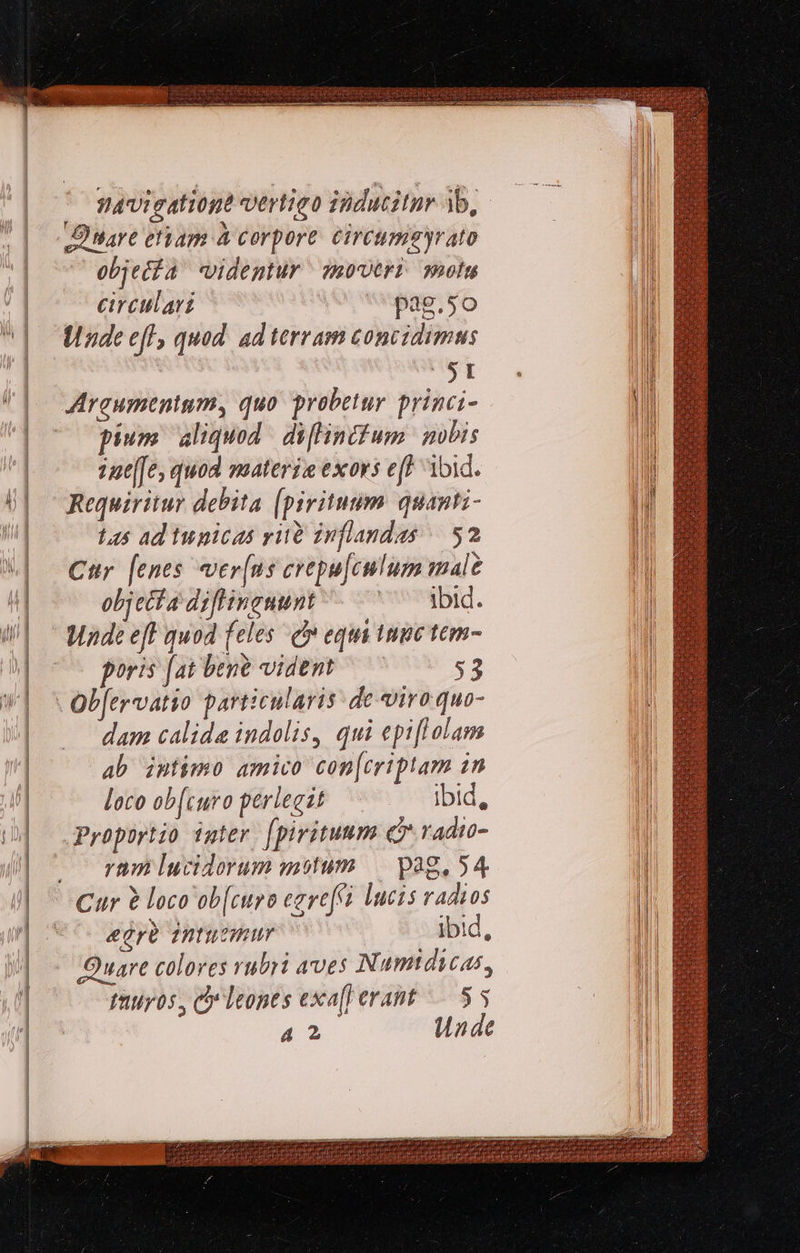 navigatione vertigo inducitur ib,
Quare etiam à corpore circumgyrato
objecta videntur moveri motu
circulari pag.50
Unde eſt, quod ad terram concidimus
51
Argumentum, quo probetur princi-
pium aliquod diſtinctum nobis
ineſſe, quod materiæ exors eſt ibid.
Requiritur debita ſpirituum quanti-
tas ad tunicas ritè inflandas 52
Cur ſenes verſus crepuſculum malè
objecta diſtinguunt ibid.
Unde eſt quod feles & equi tunc tem-
poris ſat benè vident 53
Obſervatio particularis de viro quo-
dam calidæ indolis, qui epiſtolam
ab intimo amico conſcriptam in
loco obſcuro perlegit ibid,
Proportio inter ſpirituum & radio-
rum lucidorum motum pag, 54
Cur è loco obſcuro egreſſi lucis radios
ægrè intuemur ibid,
Quare colores rubri aves Numidicas,
tauros, & leones exaſperant 55
a 2 Unde